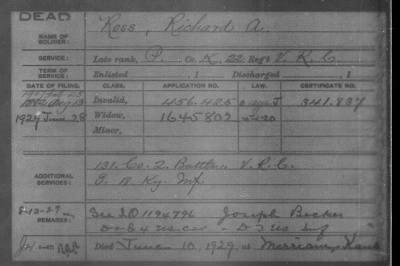 DEAD
NAME OF SOLDIER: Ross, Richard A.
SERVICE: Late rank, P. Co. K, 22 Reg't V. R. C.
TERM OF SERVICE: Enlisted , 1 Discharged , 1
DATE OF FILING. CLASS. APPLICATION NO. LAW. CERTIFICATE NO.
Invalid, 456.425 341.837
1929 June 28 Widow, 1645802
Minor,
ADDITIONAL SERVICES: 131. Co. 2. Battln. V. R. C.
Ky. Inf
REMARKS: 1194796 Joseph Becker
Died June 10, 1929, at Merriam, Kans